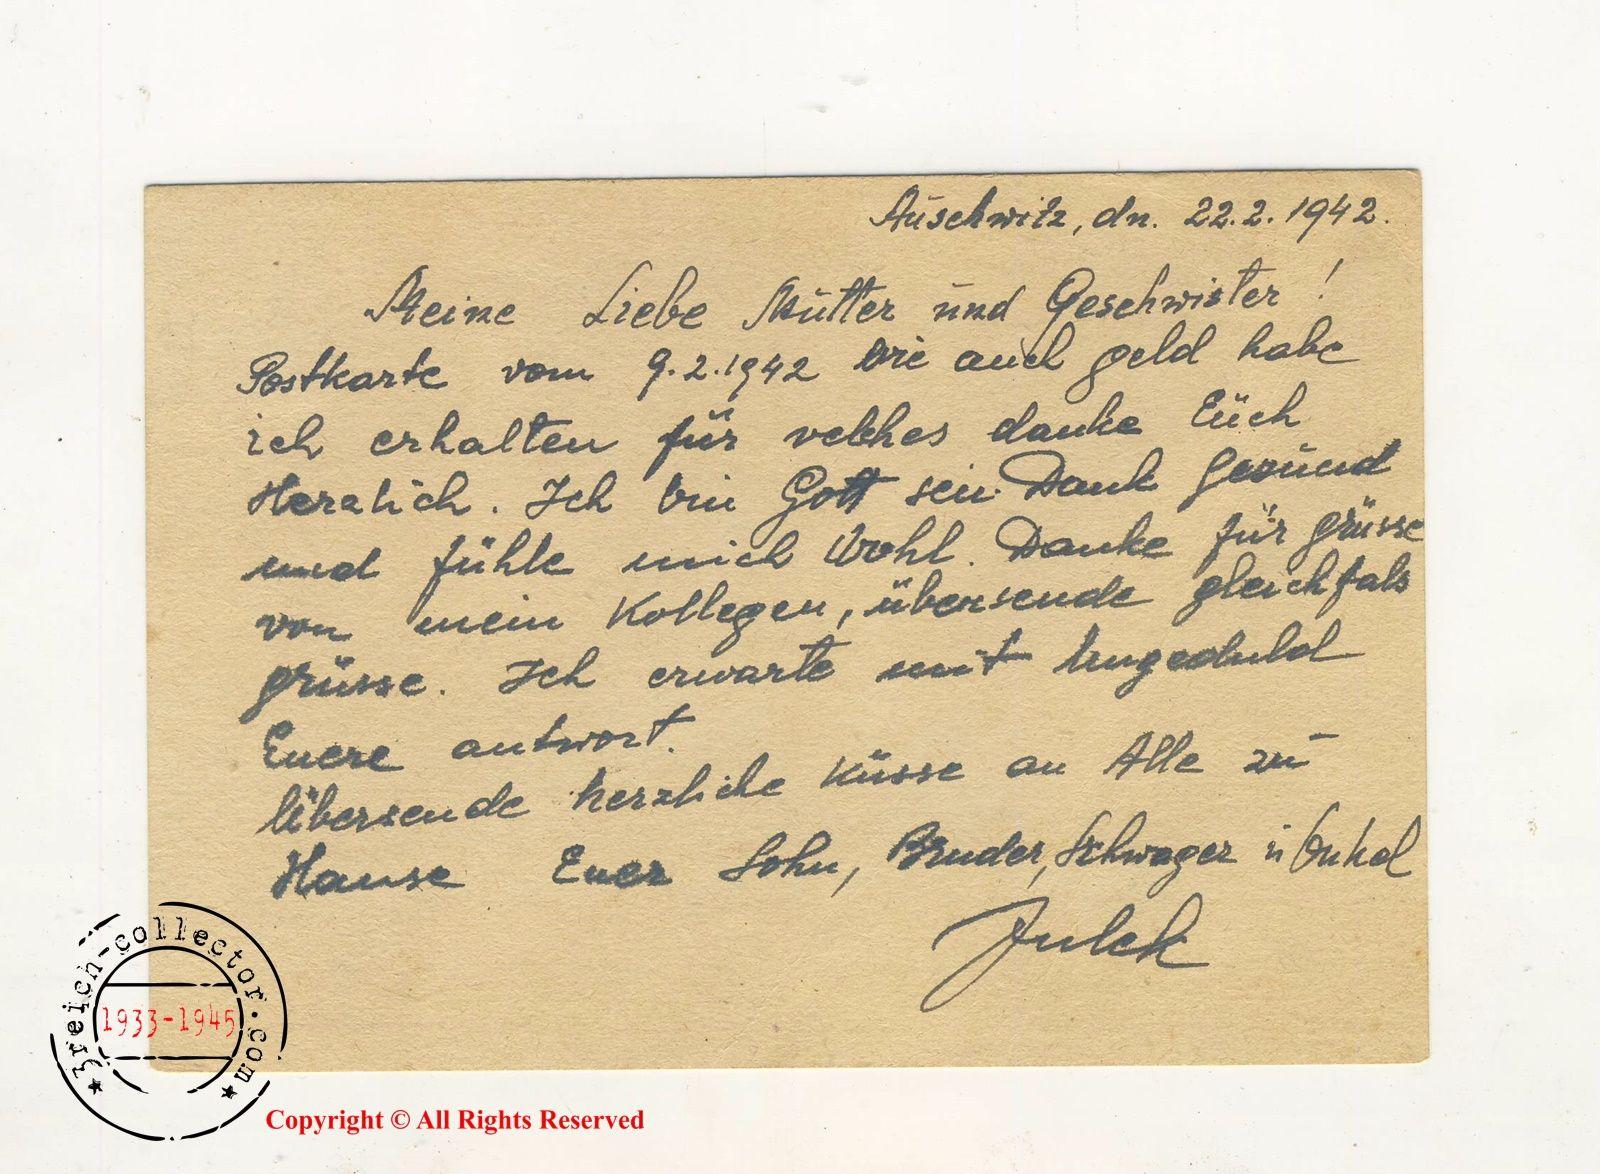 Auschwitz, dn. 22.2.1942.
Meine Liebe Mutter und Geschwister!
Postkarte vom 9.2.1942 wie auch geld habe
ich erhalten für welches danke Eüch
Herzlich. Ich bin Gott sein Dank gesund
und fühle mich Wohl. Danke für grüsse
von mein Kollegen, übersende gleichfals
grüsse. Ich erwarte mit Ungeduld
Euere antwort.
Übersende herzliche Küsse an Alle zu
Hause Euer Sohn, Bruder, Schwager u Onkel
Julek
3reich-collector.com
1933-1945
Copyright © All Rights Reserved